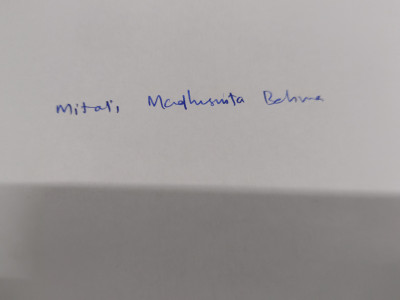 Mitali, Madhusmita Behera